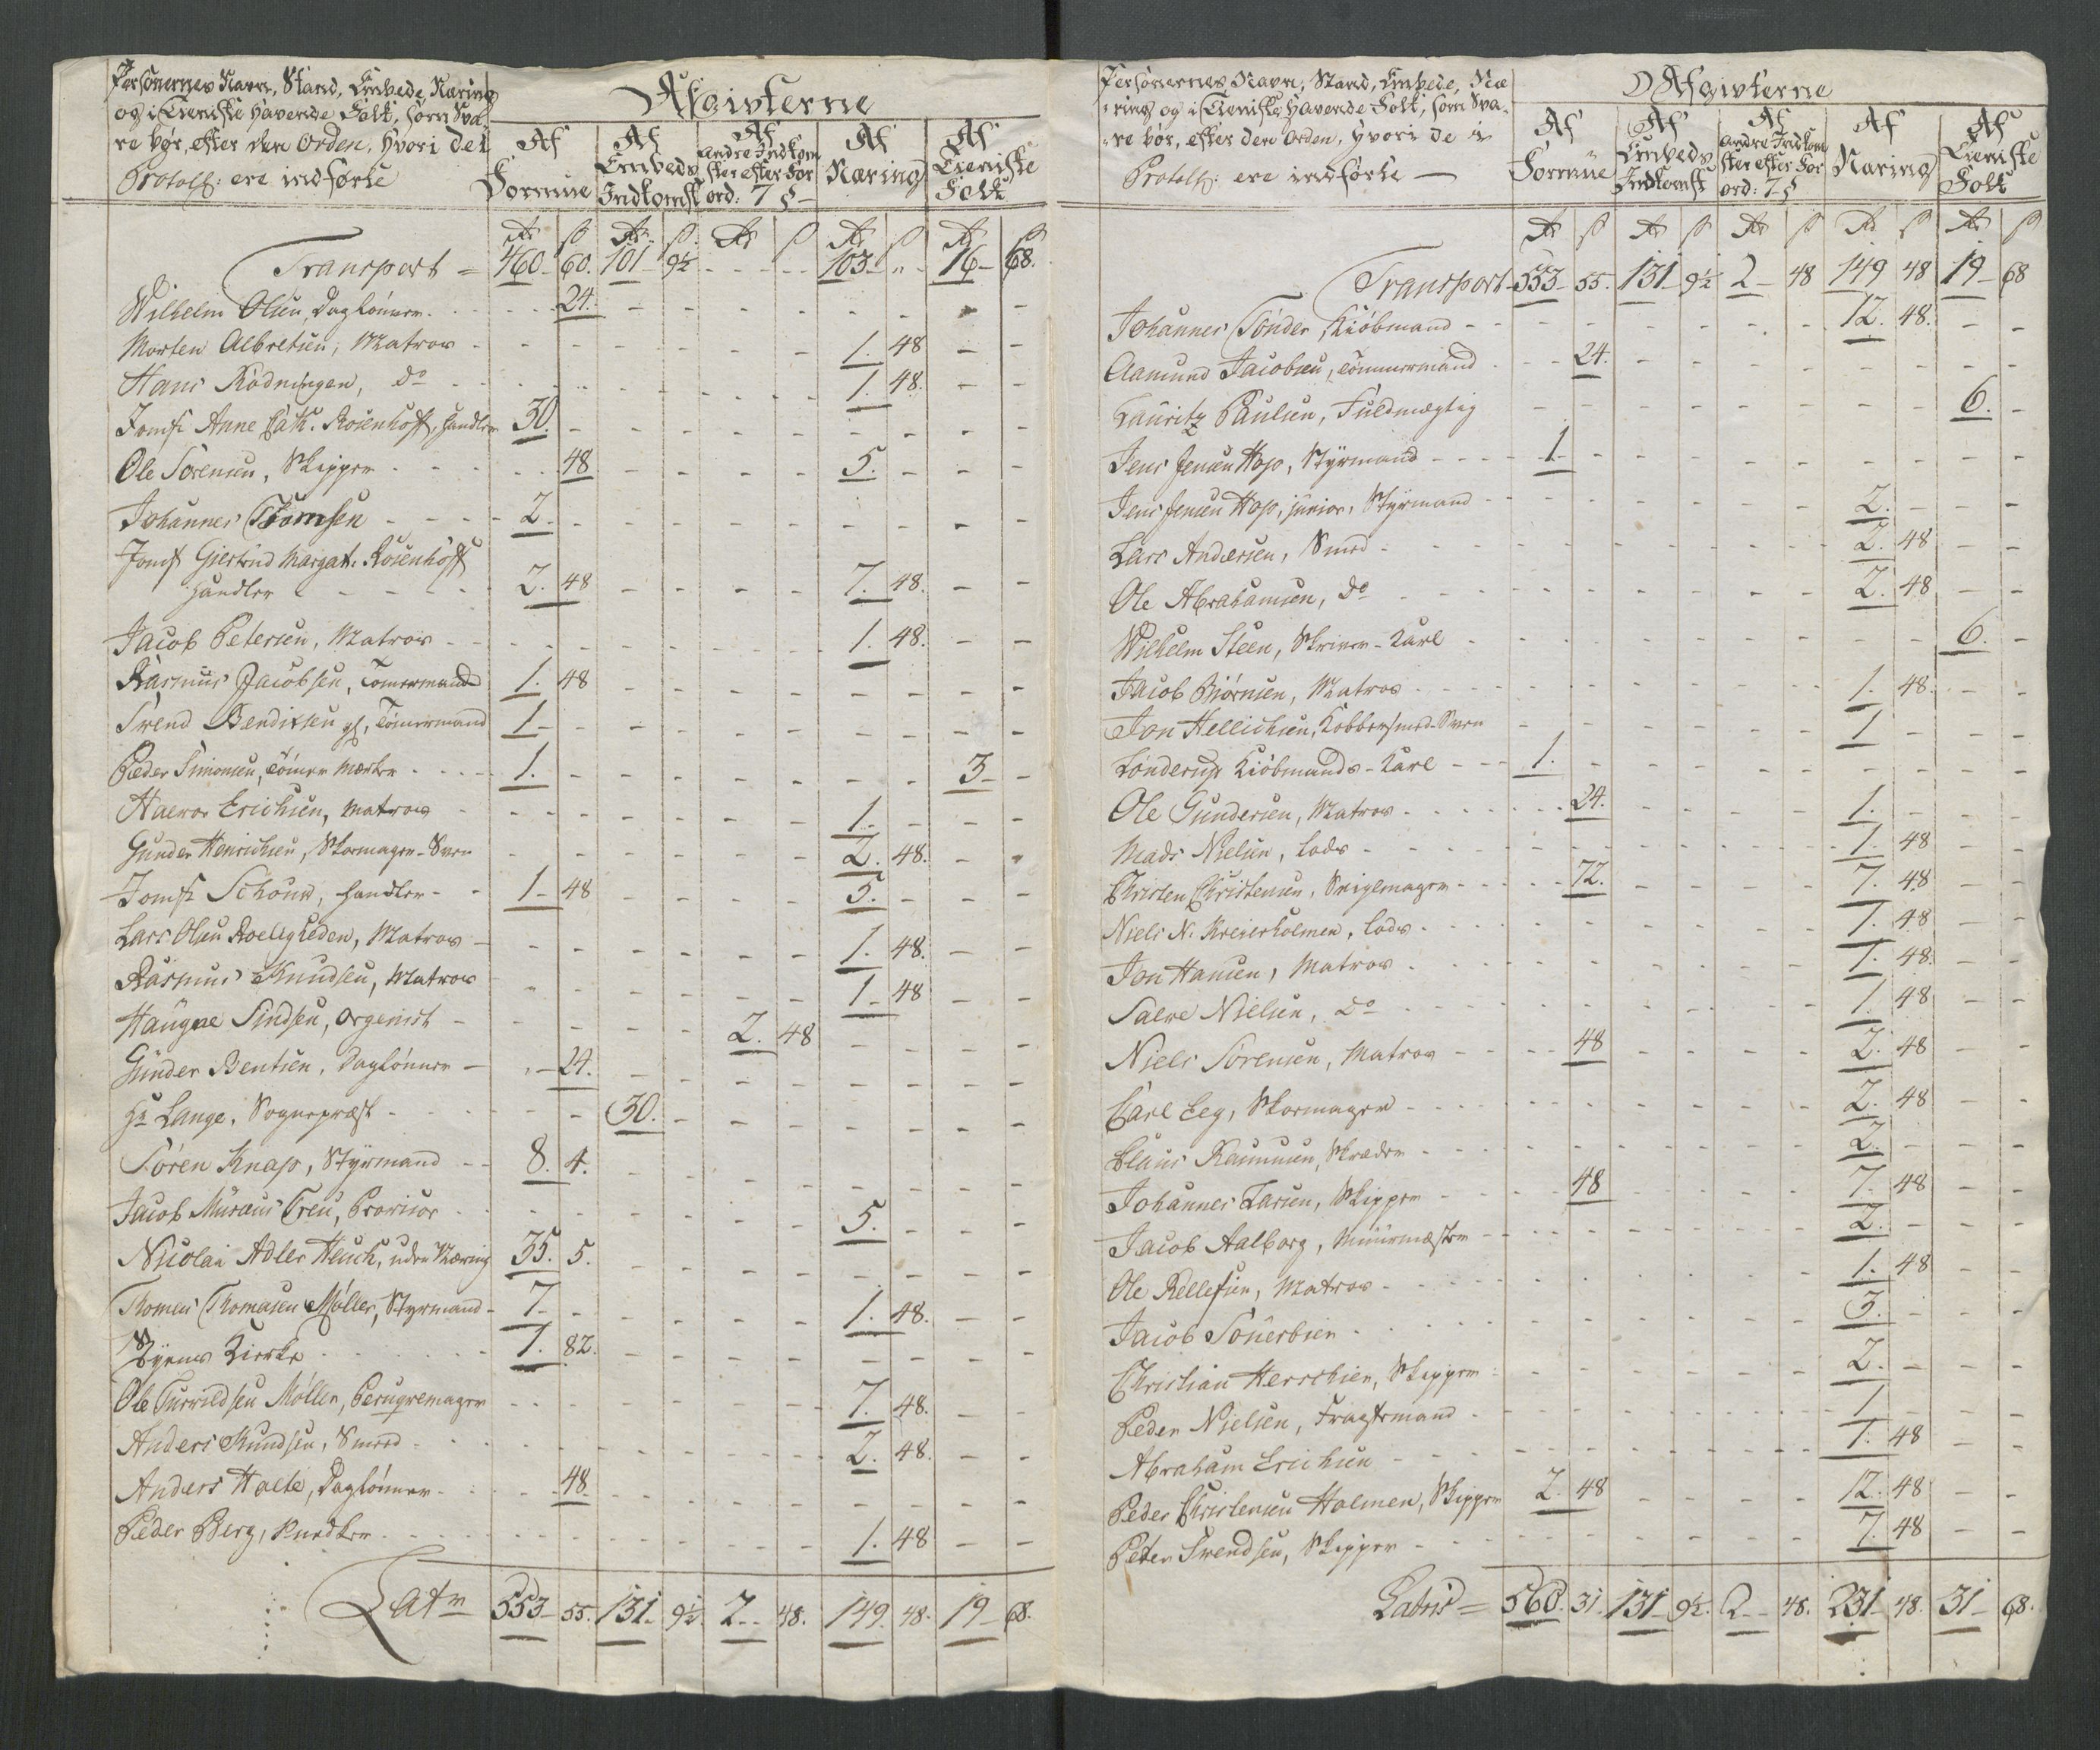 Personernes Navn, Stand, Embede, Næring
og i Tieniste havende Folk, som Sva-
re bør, efter den Orden, hvori de i
Protoll: ere indførte
Afgivterne
Af Formue | Af Embeds Indkomst | Af andre Indkomster efter Forord: 7 § | Af Næring | Af Tieniste Folk
Transport = 460 - 60. 101 - 9½ - - 103 - " - 16 - 68.
Wilhelm Olsen, Daglönner 24.
Morten Albretsen, Matros 1. 48
Hans Rödningen, do 1. 48.
Jomfr Anne Cath. Rosenhoff, Handler 30.
Ole Sörensen, Skipper 48 5.
Johannes Thomsen 2.
Jomfr Giertrud Margat: Rosenhoff
Handler 2. 48 7. 48.
Jacob Petersen, Matros 1. 48.
Rasmus Jacobsen, Tömermand 1. 48
Svend Bendixsen, Tömermand 1
Peder Simonsen, Tömer Mærker 1. 3
Halvor Erichsen, Matros 1.
Gunder Henrichsen, Skomager-Sven 2. 48.
Jomfr Schouw, Handler 1 48 5.
Lars Olsen Roeligheden, Matros 1. 48.
Rasmus Knudsen, Matros 1 48
Haugne Sindsen, Orgenist 2. 48
Gunder Bentsen, Daglönner 24.
Hr Lange, Sognepræst 30.
Sören Knap, Styrmand 8. 4.
Jacob Musæus Treu, Provisor 5.
Nicolai Adler Heuch, uden Næring 35. 5.
Thomas Thomasen Møller, Styrmand 7 1. 48.
Byens Kierke 1. 82.
Ole Turvildsen Møller, Peruqvemager 7. 48.
Anders Knudsen, Smed 2. 48.
Anders Halte, Daglönner 48.
Peder Berg, Snedker 1. 48
Latr 553 - 55. 131 - 9½. 2 - 48. 149. 48. 19 - 68.
Personernes Navn, Stand, Embede, Næ-
ring og i Tieniste havende Folk, som Sva-
re bør, efter den Orden, hvori de i
Protoll: ere indførte
Afgivterne
Af Formue | Af Embeds Indkomst | Af andre Indkomster efter Forord: 7 § | Af Næring | Af Tieniste Folk
Transport 553 - 55. 131 - 9½ 2 - 48 149 48 19 - 68
Johannes Tönder, Kiöbmand 12. 48.
Aamund Jacobsen, Tömmermand 24.
Lauritz Paulsen, Fuldmægtig 6.
Jens Jensen Hop, Styrmand 1
Jens Jensen Hop, junior, Styrmand 2.
Lars Andersen, Smed 2. 48
Ole Abrahamsen, do 2. 48
Wilhelm Steen, Skriver-Karl 6.
Jacob Biörnsen, Matros 1. 48.
Jon Hellichsen, Kobbersmed-Sven 1
Londerup Kiöbmands-Karl 1.
Ole Gundersen, Matros 24. 1.
Mads Nielsen, Lods 1. 48
Christen Christensen, Seiglmager 72. 7. 48
Niels N. Kreierholmen, Lods 1. 48
Jon Hansen, Matros 1. 48.
Salve Nielsen, do 1. 48
Niels Sörensen, Matros 48 2. 48
Carl Eeg, Skomager 2. 48
Claus Rasmusen, Skræder 2.
Johannes Larsen, Skipper 48 7. 48
Jacob Aalborg, Muurmæster 2.
Ole Kellefsen, Matros 1. 48
Jacob Sönerbien 3.
Christian Herschien, Skipper 2.
Peder Nielsen, Fragtemand 1
Abraham Erichsen 1. 48
Peder Christensen Holmen, Skipper 2. 48 12. 48
Peter Svendsen, Skipper 7. 48
Latris = 560. 31. 131 - 9½. 2 - 48. 231 - 48. 31 - 68.